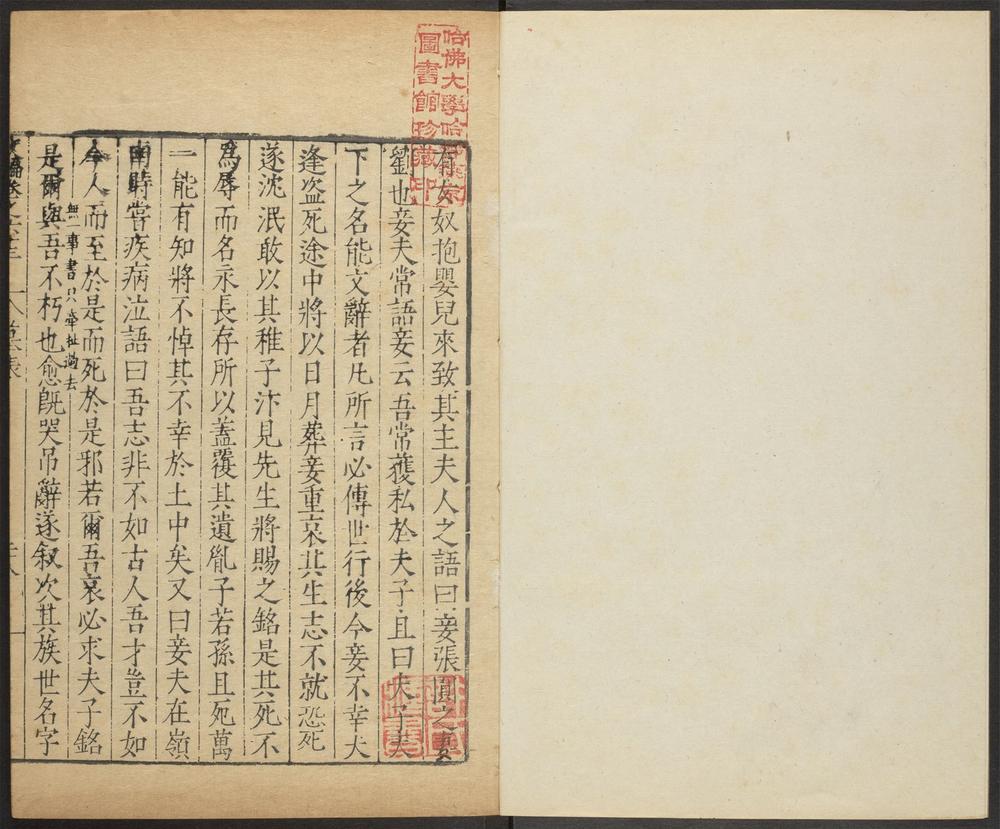 哈佛大學哈
圖書館珍藏印
有女奴抱嬰兒來致其主夫人之語曰妾張圓之妻
劉也妾夫常語妾云吾常獲私於夫子且曰夫子天
下之名能文辭者凡所言必傳世行後今妾不幸夫
逢盜死途中將以日月葬妾重哀其生志不就恐死
遂沈泯敢以其稚子汴見先生將賜之銘是其死不
爲辱而名永長存所以蓋覆其遺胤子若孫且死萬
一能有知將不悼其不幸於土中矣又曰妾夫在嶺
南時嘗疾病泣語曰吾志非不如古人吾才豈不如
今人而至於是而死於是邪若爾吾哀必求夫子銘
無一事書只牽扯過去
是爾與吾不朽也愈旣哭吊辭遂叙次其族世名字
墓表